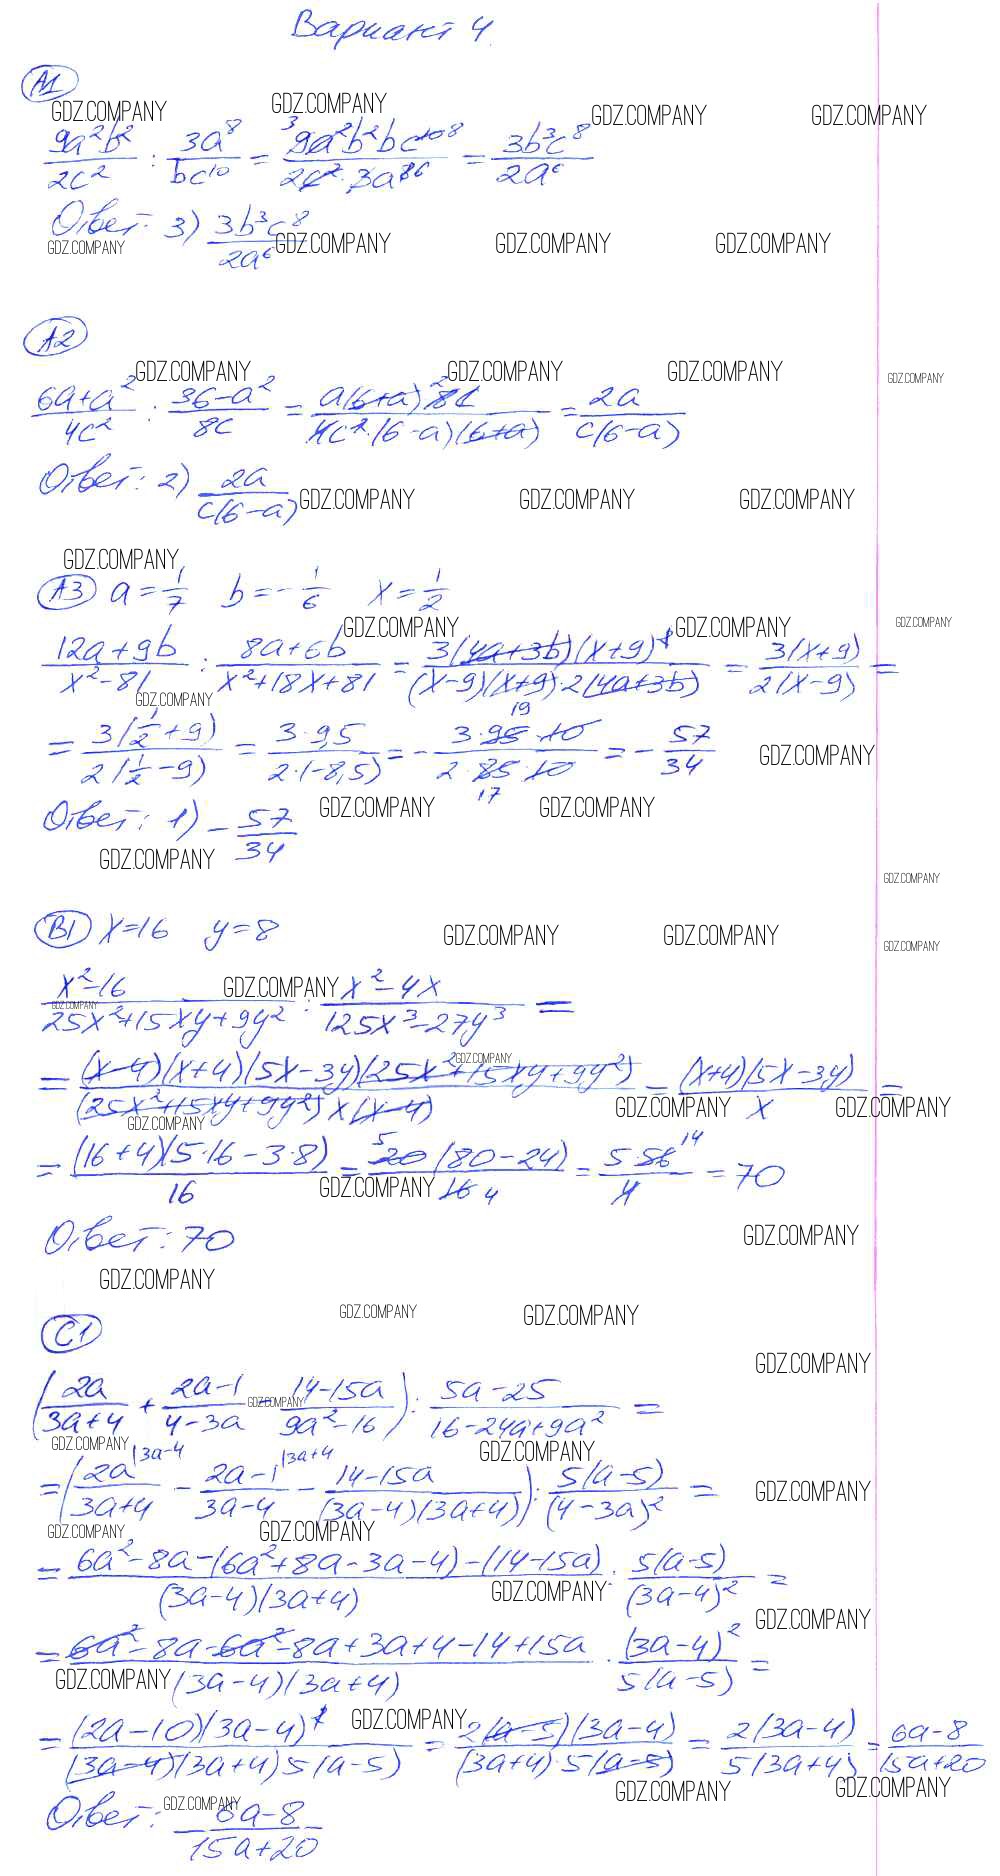 Вариант 4.
A1
GDZ.COMPANY GDZ.COMPANY GDZ.COMPANY GDZ.COMPANY
9a²b²/2c² : 3a⁸/bc¹⁰ = ³9a²b²bc¹⁰ ⁸/2c²·3a⁸ ⁶ = 3b³c⁸/2a⁶
Ответ: 3) 3b³c⁸/2a⁶
GDZ.COMPANY GDZ.COMPANY GDZ.COMPANY GDZ.COMPANY
A2
GDZ.COMPANY GDZ.COMPANY GDZ.COMPANY GDZ.COMPANY
6a+a²/4c² : 36-a²/8c = a(6+a) ²8c/4c²·(6-a)(6+a) = 2a/c(6-a)
Ответ: 2) 2a/c(6-a)
GDZ.COMPANY GDZ.COMPANY GDZ.COMPANY
GDZ.COMPANY
A3 a=1/7 b=-1/6 x=1/2
GDZ.COMPANY GDZ.COMPANY GDZ.COMPANY
12a+9b/x²-81 : 8a+6b/x²+18x+81 = 3(4a+3b)(x+9)²/(x-9)(x+9)·2(4a+3b) = 3(x+9)/2(x-9) =
GDZ.COMPANY
= 3(1/2+9)/2(1/2-9) = 3·9,5/2·(-8,5) = - 3·95 19·10/2·85 17·10 = - 57/34
GDZ.COMPANY
Ответ: 1) - 57/34
GDZ.COMPANY GDZ.COMPANY
GDZ.COMPANY
GDZ.COMPANY
B1 x=16 y=8
GDZ.COMPANY GDZ.COMPANY GDZ.COMPANY
x²-16/25x²+15xy+9y² : x²-4x/125x³-27y³ =
GDZ.COMPANY GDZ.COMPANY
= (x-4)(x+4)(5x-3y)(25x²+15xy+9y²)/(25x²+15xy+9y²)x(x-4) = (x+4)(5x-3y)/x =
GDZ.COMPANY GDZ.COMPANY GDZ.COMPANY GDZ.COMPANY
= (16+4)(5·16-3·8)/16 = ⁵20(80-24)/16 4 = 5·56 14/4 = 70
GDZ.COMPANY
Ответ: 70
GDZ.COMPANY
GDZ.COMPANY
GDZ.COMPANY GDZ.COMPANY
C1
GDZ.COMPANY
(2a/3a+4 + 2a-1/4-3a - 14-15a/9a²-16) : 5a-25/16-24a+9a² =
GDZ.COMPANY GDZ.COMPANY GDZ.COMPANY
= (2a |3a-4/3a+4 - 2a-1 |3a+4/3a-4 - 14-15a/(3a-4)(3a+4)) : 5(a-5)/(4-3a)² =
GDZ.COMPANY
GDZ.COMPANY GDZ.COMPANY
= 6a²-8a-(6a²+8a-3a-4)-(14-15a)/(3a-4)(3a+4) : 5(a-5)/(3a-4)² =
GDZ.COMPANY GDZ.COMPANY
= 6a²-8a-6a²-8a+3a+4-14+15a/(3a-4)(3a+4) · (3a-4)²/5(a-5) =
GDZ.COMPANY
= (2a-10)(3a-4)²/(3a-4)(3a+4)5(a-5) = 2(a-5)(3a-4)/(3a+4)·5(a-5) = 2(3a-4)/5(3a+4) = 6a-8/15a+20
GDZ.COMPANY GDZ.COMPANY GDZ.COMPANY
Ответ: 6a-8/15a+20
GDZ.COMPANY